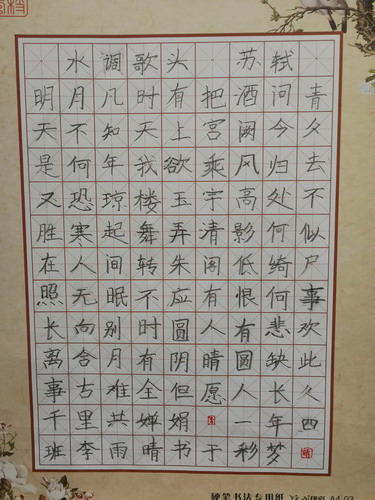 水调歌头 苏轼
明月凡时有把酒问青
天不知天上宫阙今夕
是何年我欲乘风归去
又恐琼楼玉宇高处不
胜寒起舞弄清影何似
在人间转朱阁低绮户
照无眠不应有恨何事
长向别时圆人有悲欢
离合月有阴晴圆缺此
事古难全但愿人长久
千里共婵娟 一年四
班李雨晴书于彩梦
硬笔书法专用纸 A4-03